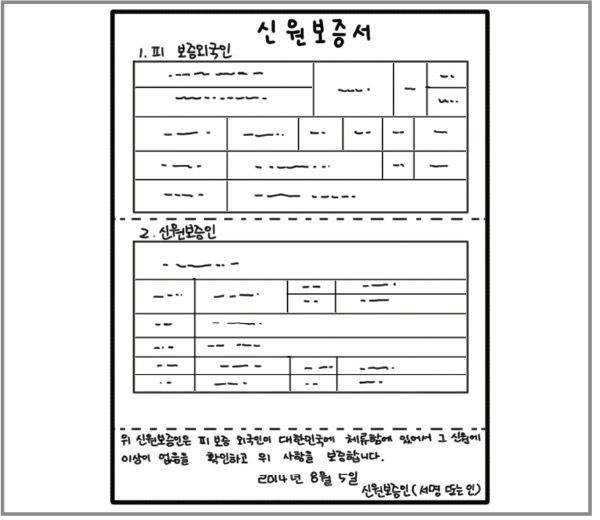 신원보증서
1. 피 보증외국인
2. 신원보증인
위 신원보증인은 피 보증 외국인이 대한민국에 체류함에 있어서 그 신원에
이상이 없음을 확인하고 위 사항을 보증합니다.
2014년 8월 5일
신원보증인(서명 또는 인)